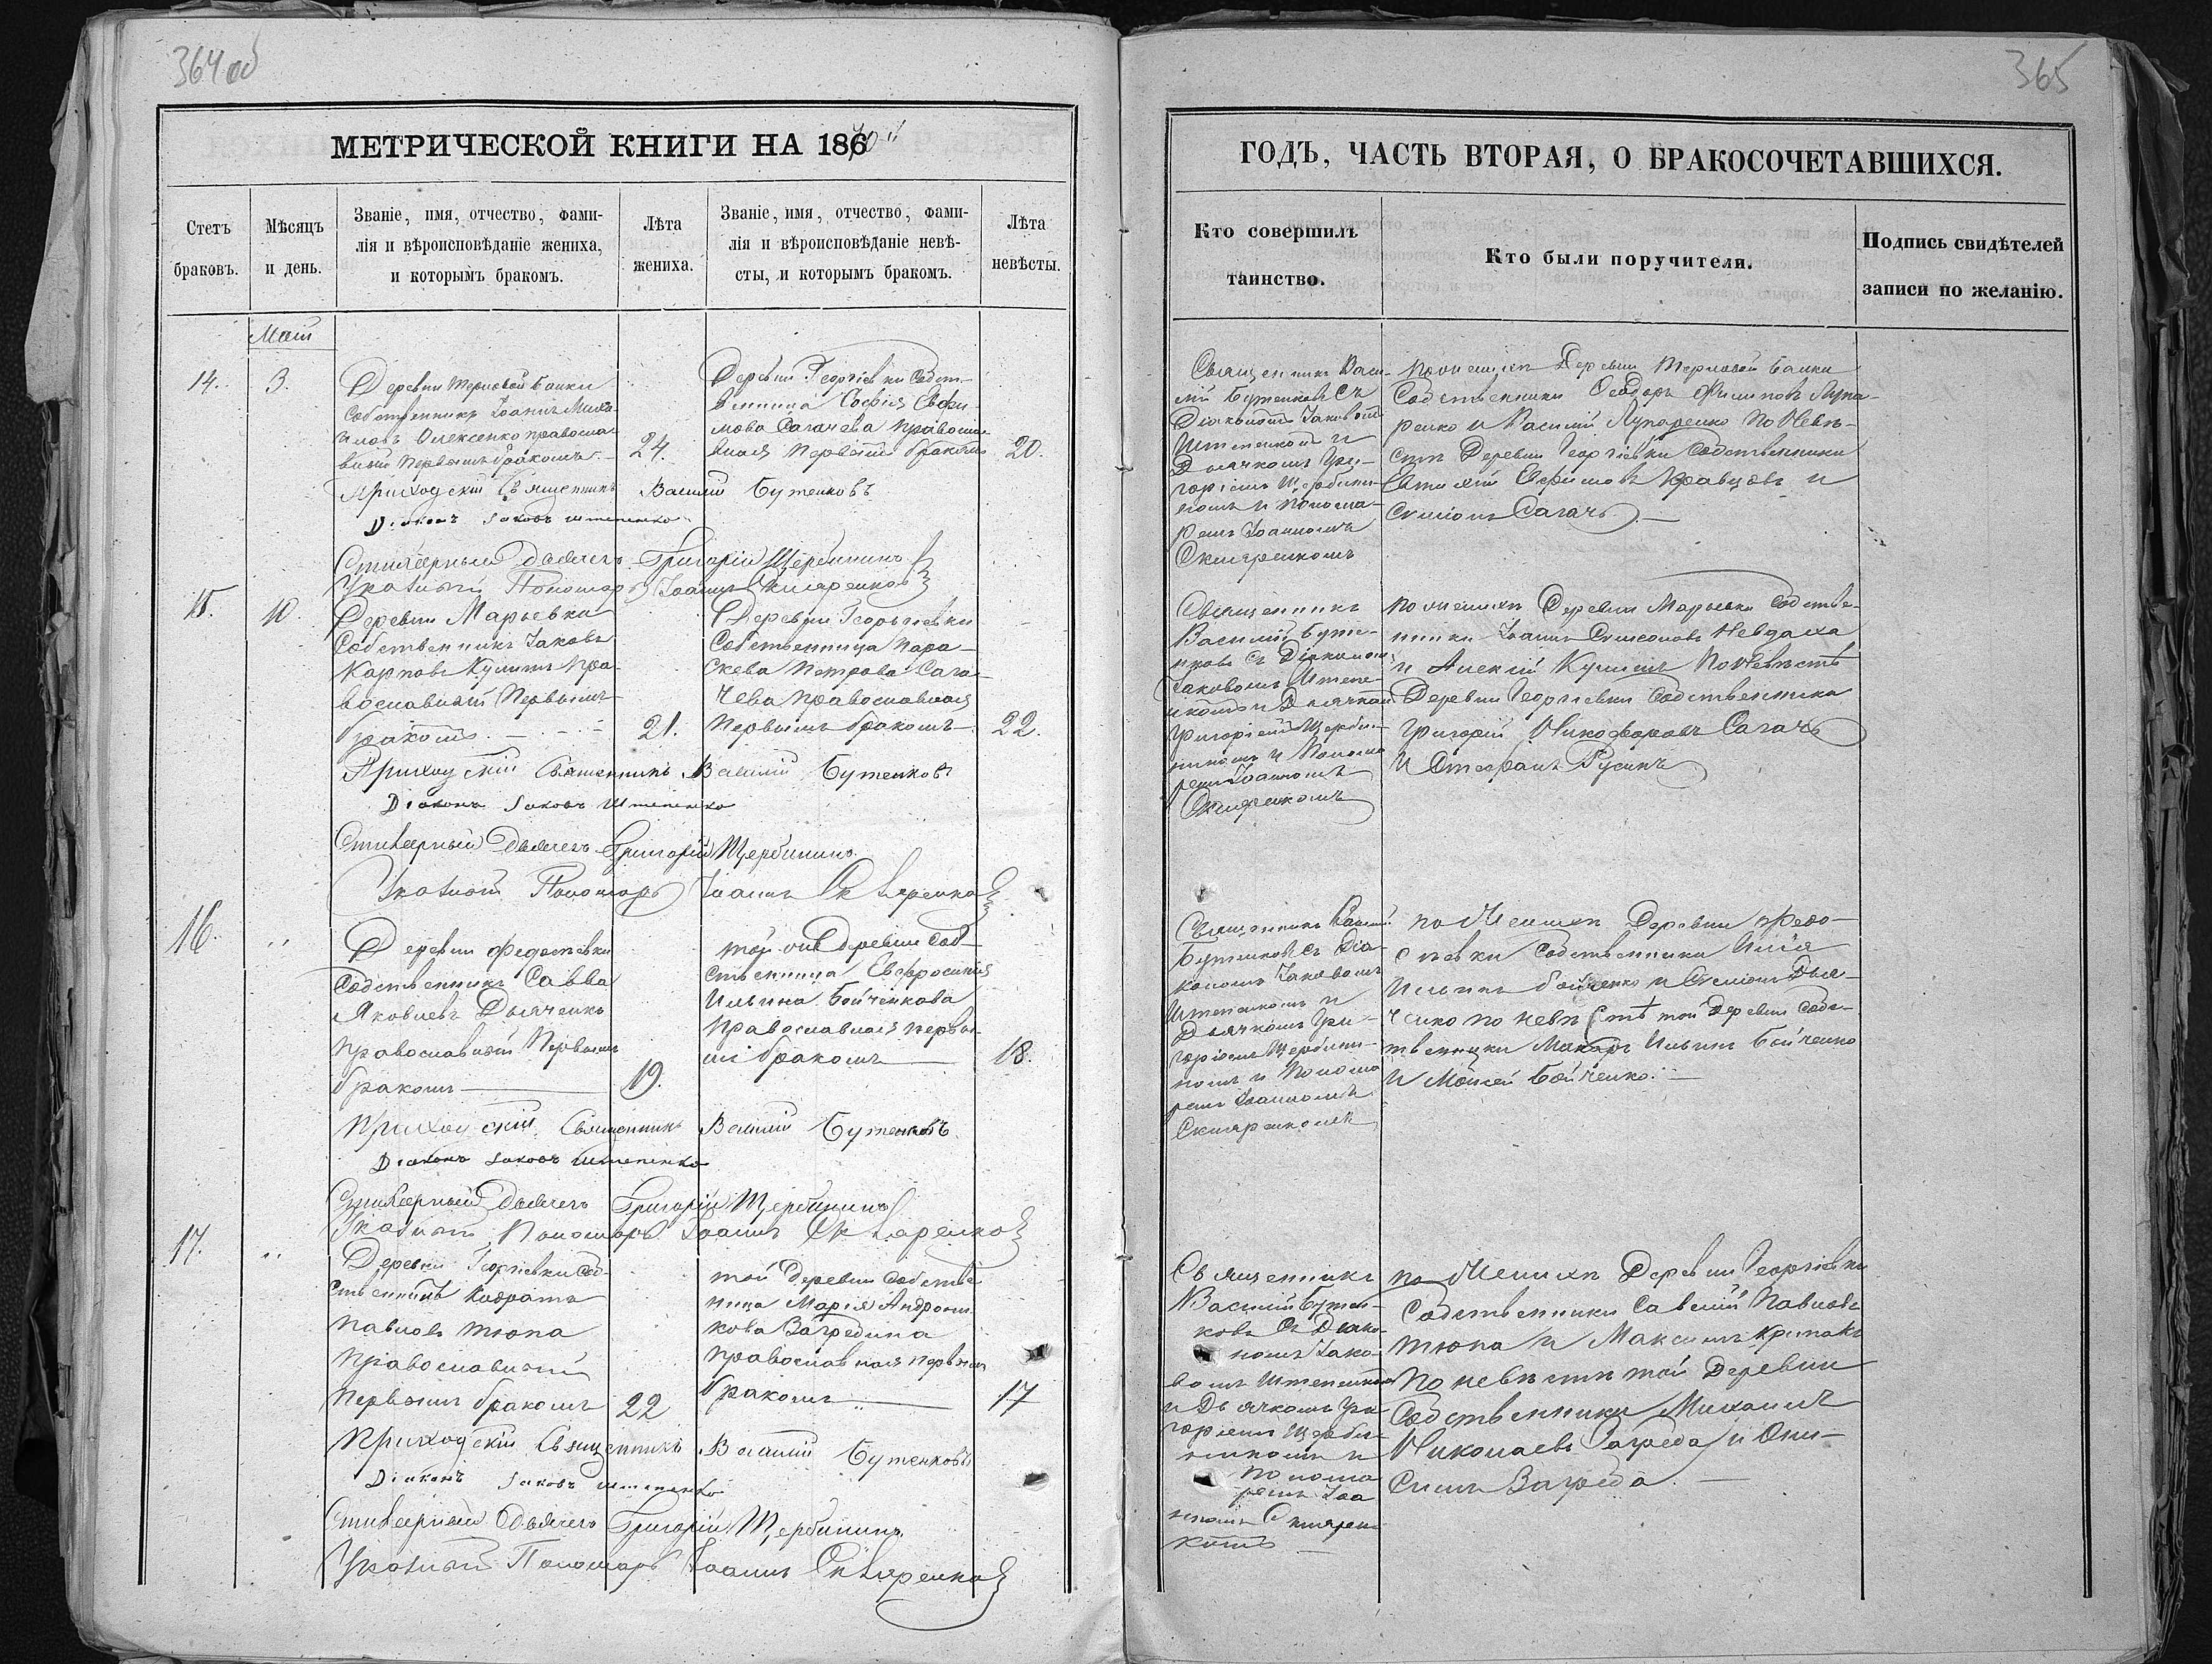 364 об
МЕТРИЧЕСКОЙ КНИГИ НА 18670й
Стетъ
браковъ.
Мѣсяцъ
и день.
Званіе, имя, отчество, фами-
лія и вѣроисповѣданіе жениха,
и которымъ бракомъ.
Лѣта
жениха.
Званіе, имя, отчество, фами-
лія и вѣроисповѣданіе невѣ-
сты, и которымъ бракомъ.
Лѣта
невѣсты.
Май
14.
3.
Деревни Терновой Балки
Собственникъ Іоаннъ Миха-
иловъ Олексенко правосла-
вный первымъ бракомъ
24.
Деревни Георгіевки Собст-
венница Софія Евфи-
мова Сагачева правосла-
вная первымъ бракомъ
20.
Приходскій Священникъ Василій Бутенковъ
Діаконъ Іаковъ Штепенко
Стихарный Дьячекъ Григорій Щербининъ
Указный Пономарь Іоаннъ Скляренко
15.
10.
Деревни Марьевки
Собственникъ Іаковъ
Карповъ Кулишъ пра-
вославный первымъ
бракомъ
21.
Деревни Георгіевки
Собственница Пара-
скева Петрова Сага-
чева православная
первымъ бракомъ
22.
Приходскій Священникъ Василій Бутенковъ
Діаконъ Іаковъ Штепенко
Стихарный Дьячекъ Григорій Щербининъ
Указный Пономарь Іоаннъ Скляренко
16.
"
Деревни Федоровки
Собственникъ Савва
Яковлевъ Дьяченко
православный первымъ
бракомъ
19.
той же деревни Соб-
ственница Евфросинія
Ильина Бойченкова
православная первы-
мъ бракомъ
18.
Приходскій Священникъ Василій Бутенковъ
Діаконъ Іаковъ Штепенко
Стихарный Дьячекъ Григорій Щербининъ
Указный Пономарь Іоаннъ Скляренко
17.
"
Деревни Георгіевки Соб-
ственникъ Кодратъ
Павловъ Тюпа
православный
первымъ бракомъ
22
той деревни Собстве-
нница Марія Андрони-
кова Загредина
православная первымъ
бракомъ
17
Приходскій Священникъ Василій Бутенковъ
Діаконъ Іаковъ Штепенко
Стихарный Дьячекъ Григорій Щербининъ
Указный Пономарь Іоаннъ Скляренко
365
ГОДЪ, ЧАСТЬ ВТОРАЯ, О БРАКОСОЧЕТАВШИХСЯ.
Кто совершилъ
таинство.
Кто были поручители.
Подпись свидѣтелей
записи по желанію.
Священникъ Васи-
лій Бутенковъ съ
Діакономъ Іаковомъ
Штепенкомъ и
Дьячкомъ Гри-
горіемъ Щербини-
номъ и Понома-
ремъ Іоанномъ
Скляренкомъ
по женихѣ Деревни Терновой Балки
Собственники Феодоръ Филиповъ Лупа-
ренко и Василій Лупаренко по невѣ-
стѣ Деревни Георгіевки Собственники
Евфимовъ Кравцовъ и
Симеонъ Сагачъ
Священникъ
Василій Буте-
нковъ съ Діакономъ
Іаковомъ Штепе-
нкомъ и Дьячкомъ
Григоріемъ Щерби-
ниномъ и Понома-
ремъ Іоанномъ
Скляренкомъ
по женихѣ Деревни Марьевки Собстве-
нники Іоаннъ Симеоновъ Невдаха
и Алексій Кулишъ по невѣстѣ
Деревни Георгіевки Собственники
Григорій Никифоровъ Сагачъ
и Стефанъ Русинъ
Священникъ Василій
Бутенковъ съ Діа-
кономъ Іаковомъ
Штепенкомъ и
Дьячкомъ Гри-
горіемъ Щербини-
номъ и Понома-
ремъ Іоанномъ
Скляренкомъ
по женихѣ Деревни Федо-
ровки Собственники Илія
Ильинъ Бойченко и Симеонъ Дья-
ченко по невѣстѣ той Деревни Собс-
твенники Макаръ Ильинъ Бойченко
и Моисей Бойченко.
Священникъ
Василій Бутен-
ковъ съ Діако-
номъ Іако-
вомъ Штепенкомъ
и Дьячкомъ Гри-
горіемъ Щерби-
ниномъ и
Понома-
ремъ Іоа-
нномъ Скларен-
комъ
по женихѣ Деревни Георгіевки
Собственники Савелій Павловъ
Тюпа и Максимъ Крипакъ
по невѣстѣ той Деревни
Собственники Михаилъ
Николаевъ Загреда и Они-
симъ Загреда.